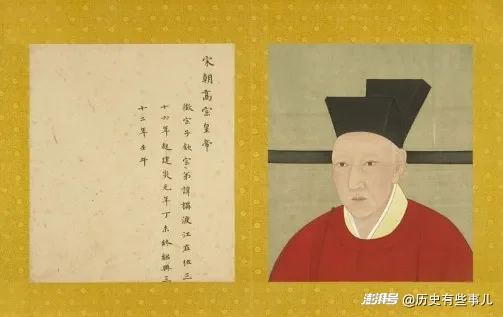 宋朝高宗皇帝
徽宗子欽宗弟諱構渡江在位三
十六年起建炎元年丁未終紹興三
十二年壬午
澎湃号 @历史有些事儿